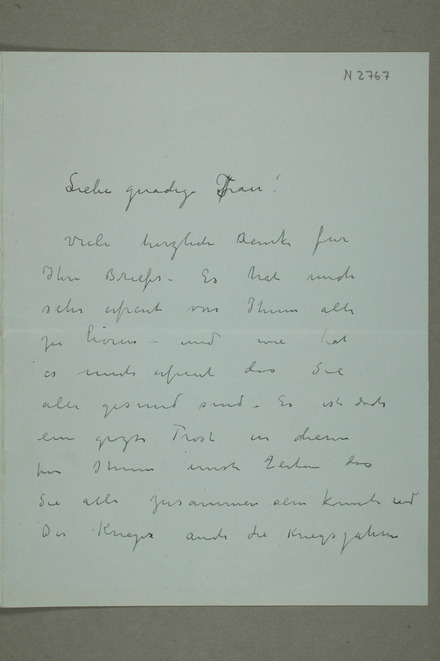 N 2767
Liebe gnädige Frau!
Viele herzlich Dank für
Ihre Briefe. Es hat mich
sehr erfreut von Ihnen alle
zu hören – und wie hat
es mich erfreut das Sie
alle gesund sind. Es ist doch
ein Trost in diesen
Ihnen Zeiten das
Sie alle zusammen sein und
Krieges auch die Kriegsjahre